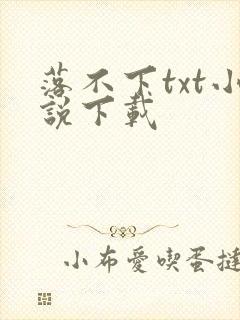 落不下txt小
說下載
小布愛喫蛋撻